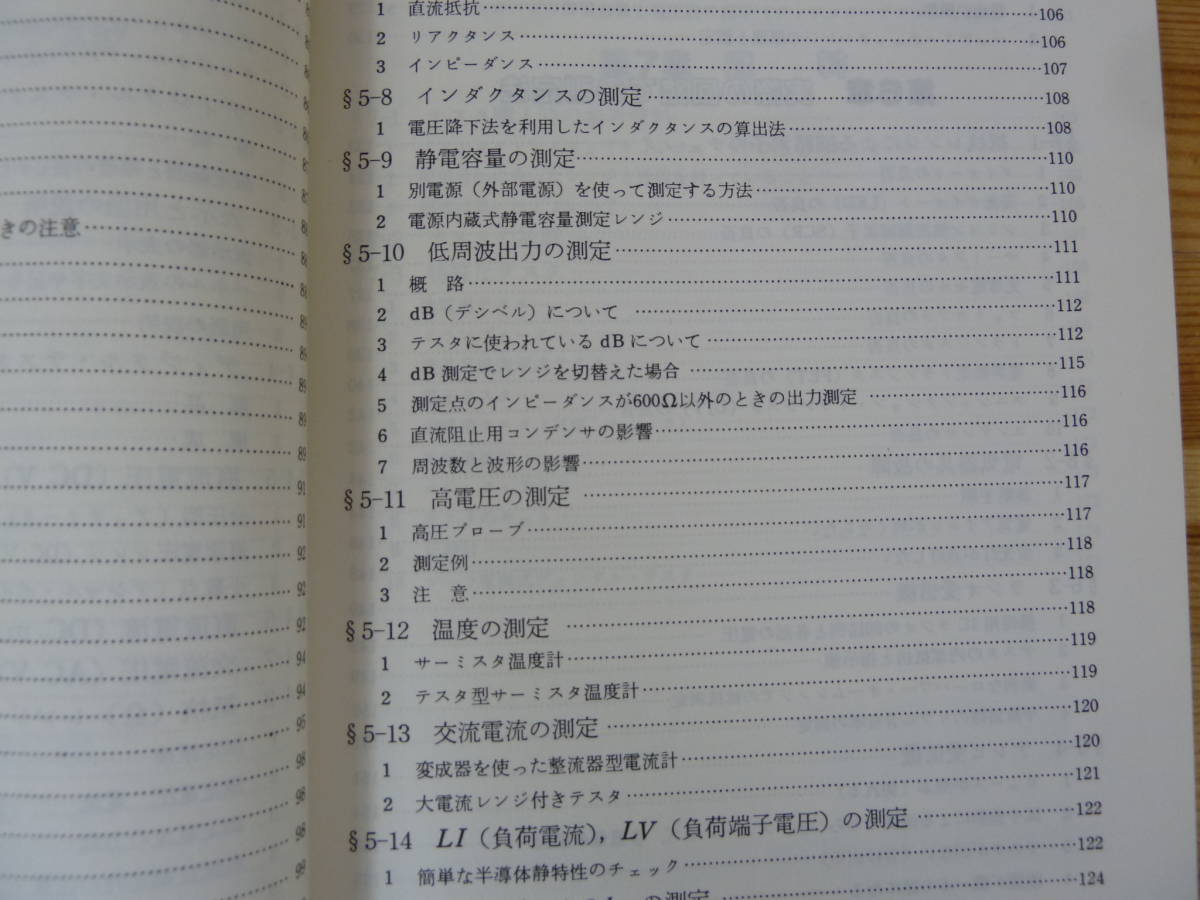 きの注意
89
89
89
89
91
91
92
92
92
94
94
95
98
98
98
99
1 直流抵抗 106
2 リアクタンス 106
3 インピーダンス 107
§5-8 インダクタンスの測定 108
1 電圧降下法を利用したインダクタンスの算出法 108
§5-9 静電容量の測定 110
1 別電源(外部電源)を使って測定する方法 110
2 電源内蔵式静電容量測定レンジ 110
§5-10 低周波出力の測定 111
1 概 略 111
2 dB(デシベル)について 112
3 テスタに使われているdBについて 112
4 dB測定でレンジを切替えた場合 115
5 測定点のインピーダンスが600Ω以外のときの出力測定 116
6 直流阻止用コンデンサの影響 116
7 周波数と波形の影響 116
§5-11 高電圧の測定 117
1 高圧プローブ 117
2 測定例 118
3 注 意 118
§5-12 温度の測定 118
1 サーミスタ温度計 119
2 テスタ型サーミスタ温度計 119
§5-13 交流電流の測定 120
1 変成器を使った整流器型電流計 120
2 大電流レンジ付きテスタ 121
§5-14 LI(負荷電流),LV(負荷端子電圧)の測定 122
1 簡単な半導体静特性のチェック 122
の測定 124